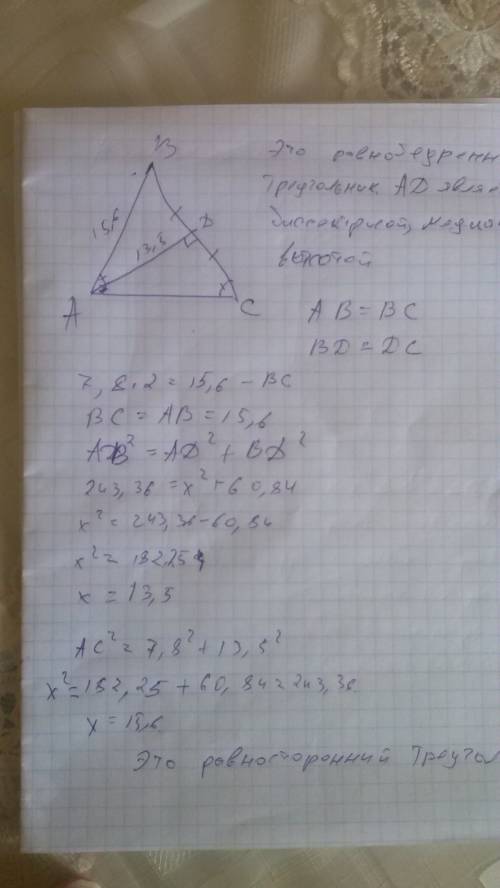 B
Это равнобедренн
Треугольник AD явля
биссектрисой, медиа
высотой
15,6
13,5
D
A
C
AB = BC
BD = DC
7,8·2 = 15,6 - BC
BC = AB = 15,6
AB² = AD² + BD²
243,36 = x² + 60,84
x² = 243,36 - 60,84
x² =
x = 13,5
AC² = 7,8² + 13,5²
x² = 182,25 + 60,84 = 243,36
x = 15,6
Это равносторонний Треугол